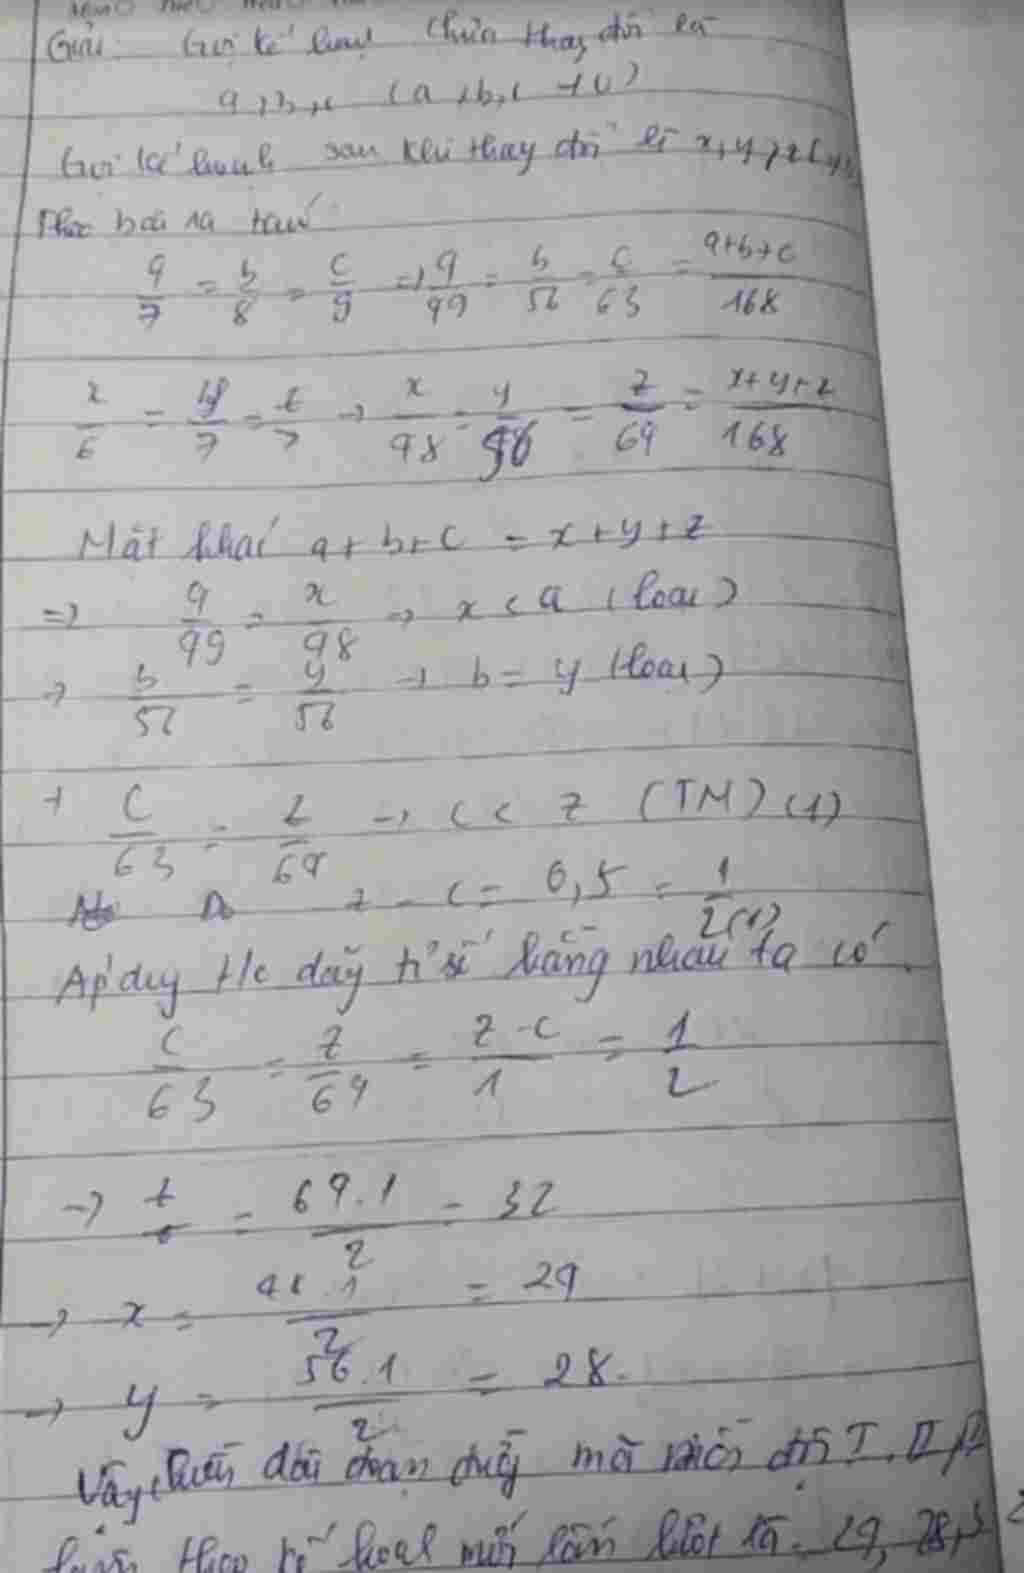 Giải: Gọi kế hoạch chưa thay đổi là
a, b, c (a, b, c ≠ 0)
Gọi kế hoạch sau khi thay đổi là x, y, z
Theo bài ra ta có
a/7 = b/8 = c/9 => a/49 = b/56 = c/63 = a+b+c/168
x/6 = y/7 = z/ → x/48 = y/56 = z/64 = x+y+z/168
Mặt khác a+b+c = x+y+z
=> a/49 = x/48 → x < a (loại)
→ b/56 = y/56 → b = y (loại)
+ c/63 = z/64 → c < z (TM) (1)
Do z - c = 0,5 = 1/2 (1)
Áp dụg t/c dãy tỉ số bằng nhau ta có
c/63 = z/64 = z-c/1 = 1/2
→ z = 64.1/2 = 32
→ x = 48.1/2 = 24
→ y = 56.1/2 = 28.
Vậy, dài đoạn đườg mà mỗi đội I, II,
theo kế hoạch mới lần lượt là: 24, 28, 32